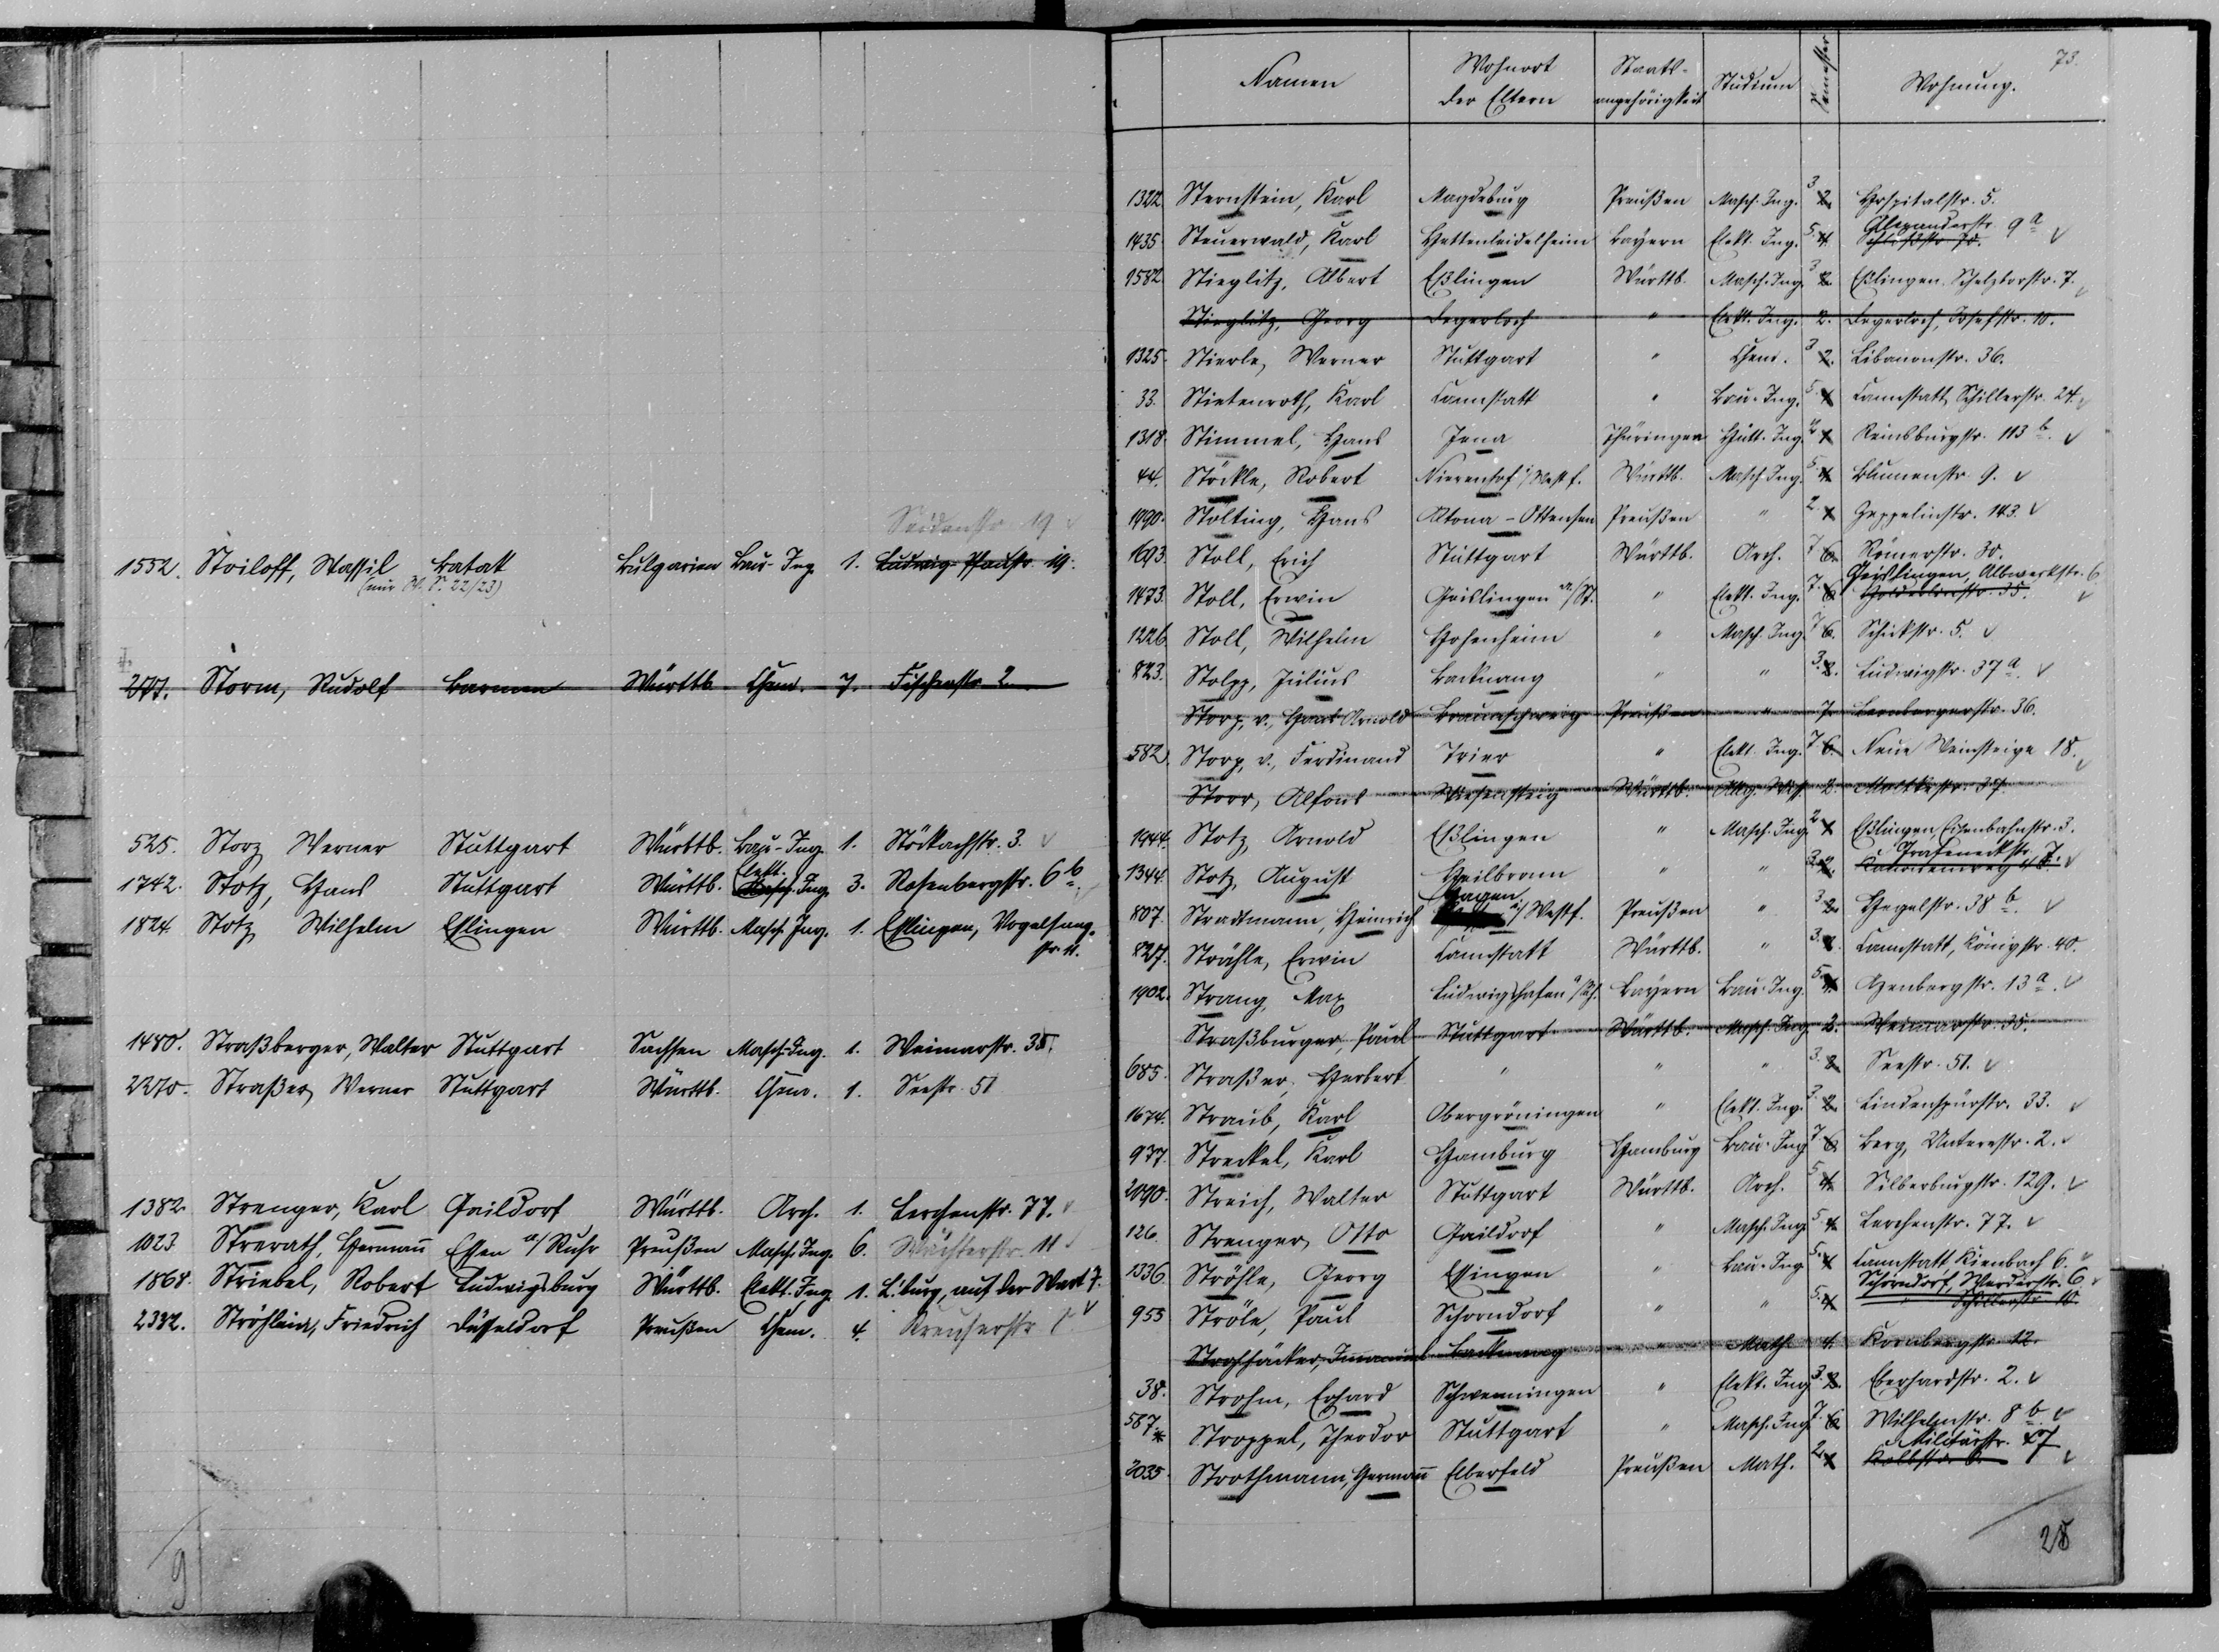 Seidenstr. 19
1552. Stoiloff, Wassil Batak Bulgarien Bau-Ing. 1. Ludwig Pfaustr. 19.
(nur W. S. 22/23)
277. Storm, Rudolf Barmen Württb. Chem. 7. Fischerstr. 2
525. Storz, Werner Stuttgart Württb. Bau-Ing. 1. Stöckachstr. 3.
Elekt.
1742. Stotz, Hans Stuttgart Württb. Masch. Ing. 3. Rosenbergstr. 6 b.
1824. Stotz, Wilhelm Eßlingen Württb. Masch. Ing. 1. Eßlingen, Vogelsang-
str. 11.
1480. Straßberger, Walter Stuttgart Sachsen Masch-Ing. 1. Weimarstr. 35.
2270. Straßer, Werner Stuttgart Württb. Chem. 1. Seestr. 51
1382. Strenger, Karl Gaildorf Württb. Arch. 1. Lerchenstr. 77.
1023. Strerath, Hermann Essen a/Ruhr Preußen Masch. Ing. 6. Wächterstr. 11
1868. Striebel, Robert Ludwigsburg Württb. Elekt. Ing. 1. L'burg, auf der Wart 7.
2332. Ströhlein, Friedrich Düsseldorf Preußen Chem. 4. Kreuserstr.
9
73.
Namen Wohnort der Eltern Staats-angehörigkeit Studium Semester Wohnung.
1322. Sternstein, Karl Magdeburg Preußen Masch. Ing. 3 2. Hospitalstr. 5.
Alexanderstr. 9 a
1435. Steuerwald, Karl Hettenleidelheim Bayern Elekt. Ing. 5. 4.
1582. Stieglitz, Albert Eßlingen Württb. Masch. Ing. 3 2. Eßlingen, Schelztorstr. 7.
Stieglitz, Georg Degerloch " Elekt. Ing. 2. Degerloch, Josefstr. 10.
1325. Stierle, Werner Stuttgart " Chem. 3 2. Libanonstr. 36.
33. Stietenroth, Karl Cannstatt " Bau-Ing. 5. 4 Cannstatt, Schillerstr. 24.
1318. Stimmel, Hans Jena Thüringen Hütt. Ing. 2 1 Reinsburgstr. 113 b.
44. Stöckle, Robert Nierenhof i/Westf. Württb. Masch. Ing. 5. 4. Blumenstr. 9.
1990. Stölting, Hans Altona-Ottensen Preußen " 2. 1 Zeppelinstr. 143.
1693. Stoll, Erich Stuttgart Württb. Arch. 7 6. Römerstr. 30.
Geislingen, Albwerkstr. 6
1473. Stoll, Erwin Geislingen a/St. " Elekt. Ing. 7. 6. Hölderlinstr. 35.
1226. Stoll, Wilhelm Hohenheim " Masch. Ing. 7 6. Schickstr. 5.
823. Stolpp, Julius Backnang " " 3. 2. Ludwigstr. 37 a.
Storp, v., Hans Arnold Braunschweig Preußen " 7. Leonbergerstr. 36.
582. Storp, v., Ferdinand Trier " Elekt. Ing. 7. 6. Neue Weinsteige 18.
Storr, Alfons Wiesensteig Württb. Allg. Wiss. 2. Moltkestr. 37.
1944. Stotz, Arnold Eßlingen " Masch. Ing. 2 1 Eßlingen, Eisenbahnstr. 3.
Grafeneckstr. 7.
1344. Stotz, August Heilbronn " " 3. 2.
Hagen
807. Stradtmann, Heinrich i/Westf. Preußen " 3. 2. Hegelstr. 38 b.
827. Strähle, Erwin Cannstatt Württb. " 3. 2. Cannstatt, Königstr. 40.
1902. Strang, Max Ludwigshafen a/Rh. Bayern Bau-Ing. 5. 4. Azenbergstr. 13 a.
Straßburger, Paul Stuttgart Württb. Masch. Ing. 2. Weimarstr. 35.
685. Straßer, Herbert " " " 3. 2. Seestr. 51.
1674. Straub, Karl Obergröningen " Elekt. Ing. 3. 2. Lindenspürstr. 33.
937. Streckel, Karl Hamburg Hamburg Bau-Ing. 7. 6. Berg, Unterestr. 2.
2090. Streich, Walter Stuttgart Württb. Arch. 5. 4. Silberburgstr. 129.
126. Strenger, Otto Gaildorf " Masch. Ing. 5. 4. Lerchenstr. 77.
1336. Ströhle, Georg Essingen " Bau-Ing 5. 4 Cannstatt Kienbach 6.
Schorndorf, 6
955 Ströle, Paul Schorndorf " " 5. 4 " Schillerstr. 10.
Strohhäcker, Immanuel Backnang " Math. 4. Kornbergstr. 12.
38. Strohm, Erhard Schwenningen " Elekt. Ing 3. 2. Eberhardstr. 2.
587. * Stroppel, Theodor Stuttgart " Masch. Ing. 7. 6. Wilhelmstr. 8 b.
Militärstr. 27
2035. Strothmann, Hermann Elberfeld Preußen Math. 2. 1 Kolbstr. 6.
28